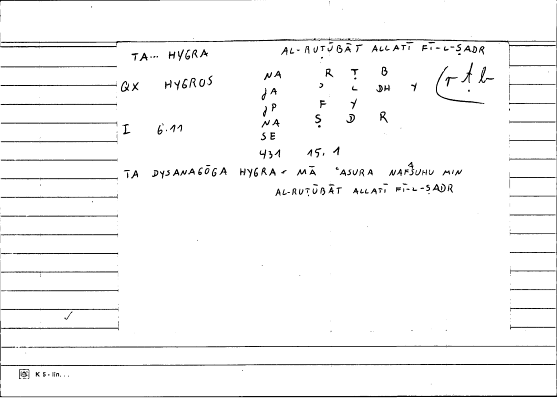 TA... HYGRA AL-RUṬŪBĀT ALLATĪ FĪ-L-ṢADR
QX HYGROS NA R Ṭ B (r ṭ b
JA ʾ L DH Y
JP F Y
I 6.11 NA Ṣ D R
SE
431 15,1
TA DYSANAGŌGA HYGRA - MĀ ʿASURA NAFṮUHU MIN
AL-RUṬŪBĀT ALLATĪ FĪ-L-ṢADR
K 5 - lin...